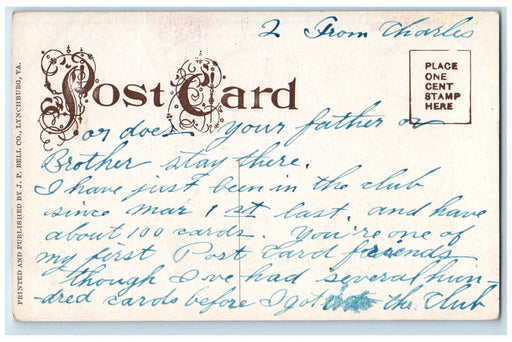 2 From Charles
Post Card
PLACE
ONE
CENT
STAMP
HERE
or does your father or
Brother stay there.
I have just been in the club
since Mar 1 st last. and have
about 100 cards. You're one of
my first Post Card friends
though I've had several hun-
dred cards before I got into the Club
PRINTED AND PUBLISHED BY J. P. BELL CO., LYNCHBURG, VA.